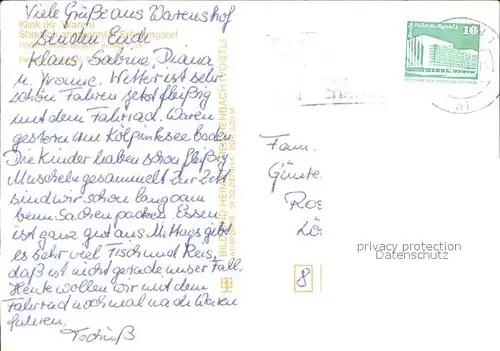 Viele Grüße aus Warenshof
senden Euch
Klaus, Sabine, Diana
u. Yvonne. Wetter ist sehr
schön Fahren jetzt fleißig
mit dem Fahrrad. Waren
gestern am Kölpinsee baden
Die Kinder haben schon fleißig
Muscheln gesammelt. Zur Zeit
sind wir schon langsam
beim Sachen packen. Essen
ist ganz gut aus Mittags gibt
es sehr viel Fisch und Reis,
daß ist nicht gerade unser Fall.
Heute wollen wir mit dem
Fahrrad nochmal nach Waren
fahren.
Tschüß
Klink (Kr. Waren)
BILD UND HEIMAT REICHENBACH (VOGTL)
10
Fam.
Günte
Ros
Lö
privacy protection
Datenschutz
8